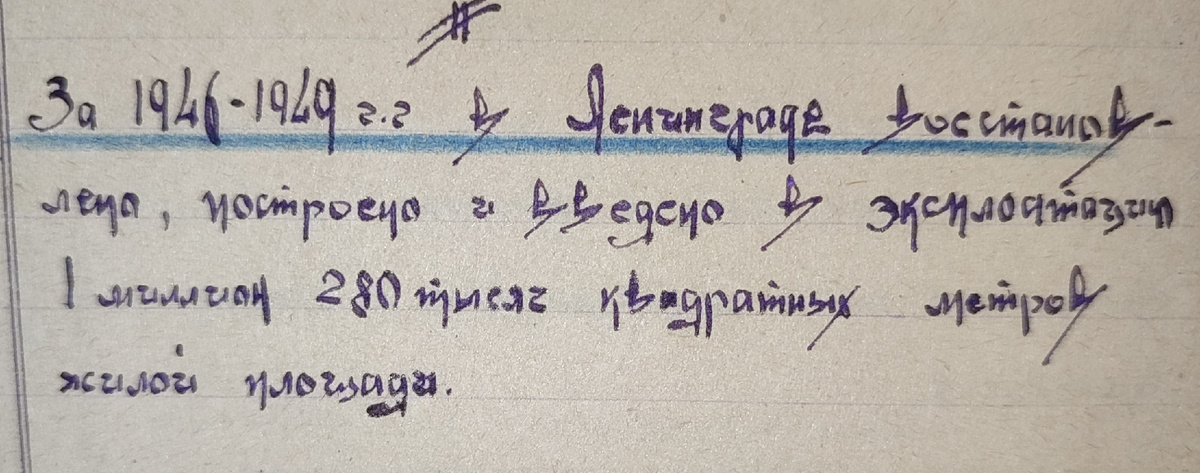 //
За 1946-1949 г.г в Ленинграде восстанов-
лено, построено и введено в эксплоатацию
1 миллион 280 тысяч квадратных метров
жилой площади.